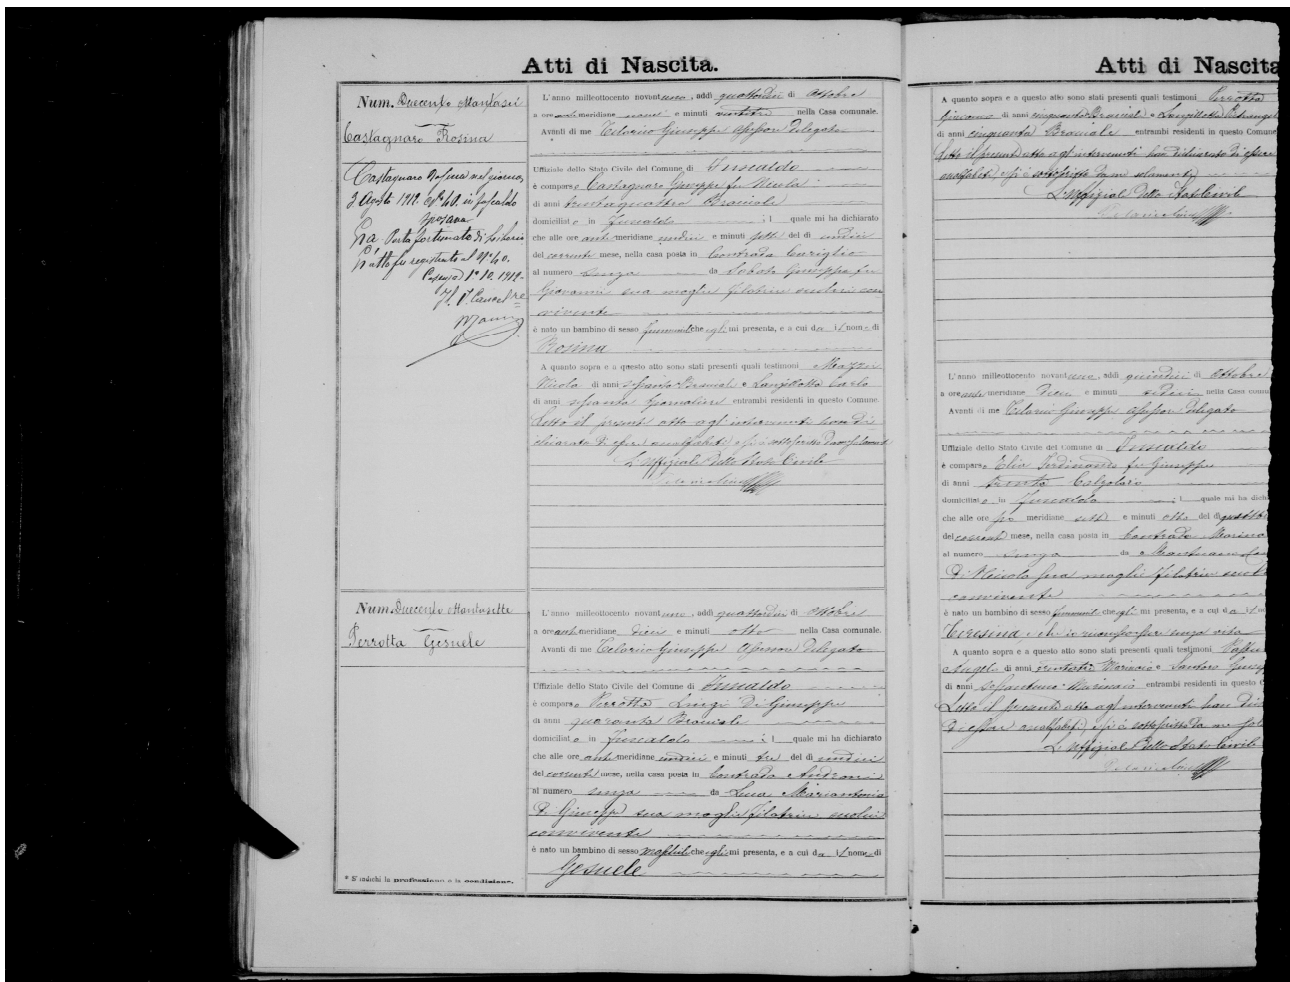 Atti di Nascita.
Num. Duecento Quarantasei
Castagnaro Rosina
Castagnaro Rosina nel giorno
3 Agosto 1912 Nº 40. in Fuscaldo
sposava
Porta Fortunato di
L'atto fu registrato al Nº 40.
Cosenza 1912
Il V. Cancel.re
L'anno milleottocento novantuno, addì quattordici di Ottobre
a ore antemeridiane nove e minuti ventitre nella Casa comunale.
Avanti di me Telario Giuseppe Assessore delegato
Uffiziale dello Stato Civile del Comune di Fuscaldo
è comparso Castagnaro Giuseppe fu Nicola
di anni trentaquattro Bracciale
domiciliato in Fuscaldo il quale mi ha dichiarato
che alle ore antemeridiane undici e minuti sette del dì undici
del corrente mese, nella casa posta in Contrada
al numero senza da Giuseppa fu
Giovanni sua moglie filatrice seco lui con
vivente
è nato un bambino di sesso femminile che egli mi presenta, e a cui dà il nome di
Rosina
A quanto sopra e a questo atto sono stati presenti quali testimoni
Nicola di anni Bracciale e Langillotta Carlo
di anni sessanta Giornaliere entrambi residenti in questo Comune.
Letto il presente atto agl'intervenuti han di
chiarato di essere analfabeti e si è sottoscritto da me solamente
L'Uffiziale dello Stato Civile
Num. Duecento Quarantasette
Perrotta Gesuele
L'anno milleottocento novantuno, addì quattordici di Ottobre
a ore antemeridiane dieci e minuti otto nella Casa comunale.
Avanti di me Telario Giuseppe Assessore delegato
Uffiziale dello Stato Civile del Comune di Fuscaldo
è comparso Perrotta Luigi di Giuseppe
di anni quaranta Bracciale
domiciliato in Fuscaldo il quale mi ha dichiarato
che alle ore antemeridiane undici e minuti tre del dì undici
del corrente mese, nella casa posta in Contrada
al numero senza da Mariantonia
di Giuseppe sua moglie filatrice seco lui
convivente
è nato un bambino di sesso maschile che egli mi presenta, e a cui dà il nome di
Gesuele
* S'indichi la professione o la condizione.
Atti di Nascita
A quanto sopra e a questo atto sono stati presenti quali testimoni Perrotta
Giacomo di anni cinquanta Bracciale e Langillotta
di anni cinquanta Bracciale entrambi residenti in questo Comune
Letto il presente atto agl'intervenuti han dichiarato di essere
analfabeti e si è sottoscritto da me solamente
L'Uffizial dello Stato Civile
L'anno milleottocento novantuno, addì quindici di Ottobre
a ore antemeridiane dieci e minuti sedici nella Casa comu
Avanti di me Telario Giuseppe Assessore delegato
Uffiziale dello Stato Civile del Comune di Fuscaldo
è comparso Elia Ferdinando fu Giuseppe
di anni trenta Calzolaio
domiciliato in Fuscaldo il quale mi ha dich
che alle ore po meridiane sette e minuti otto del dì
del corrente mese, nella casa posta in Contrada Marina
al numero senza da Mantuano
di Nicola sua moglie filatrice seco l
convivente
è nato un bambino di sesso femminile che egli mi presenta, e a cui dà il no
Teresina
A quanto sopra e a questo atto sono stati presenti quali testimoni
Angelo di anni Marinaio e Santoro
di anni Marinaio entrambi residenti in questo C
Letto il presente atto agl'intervenuti han dic
di essere analfabeti, e si è sottoscritto da me sol
L'Uffizial dello Stato Civile